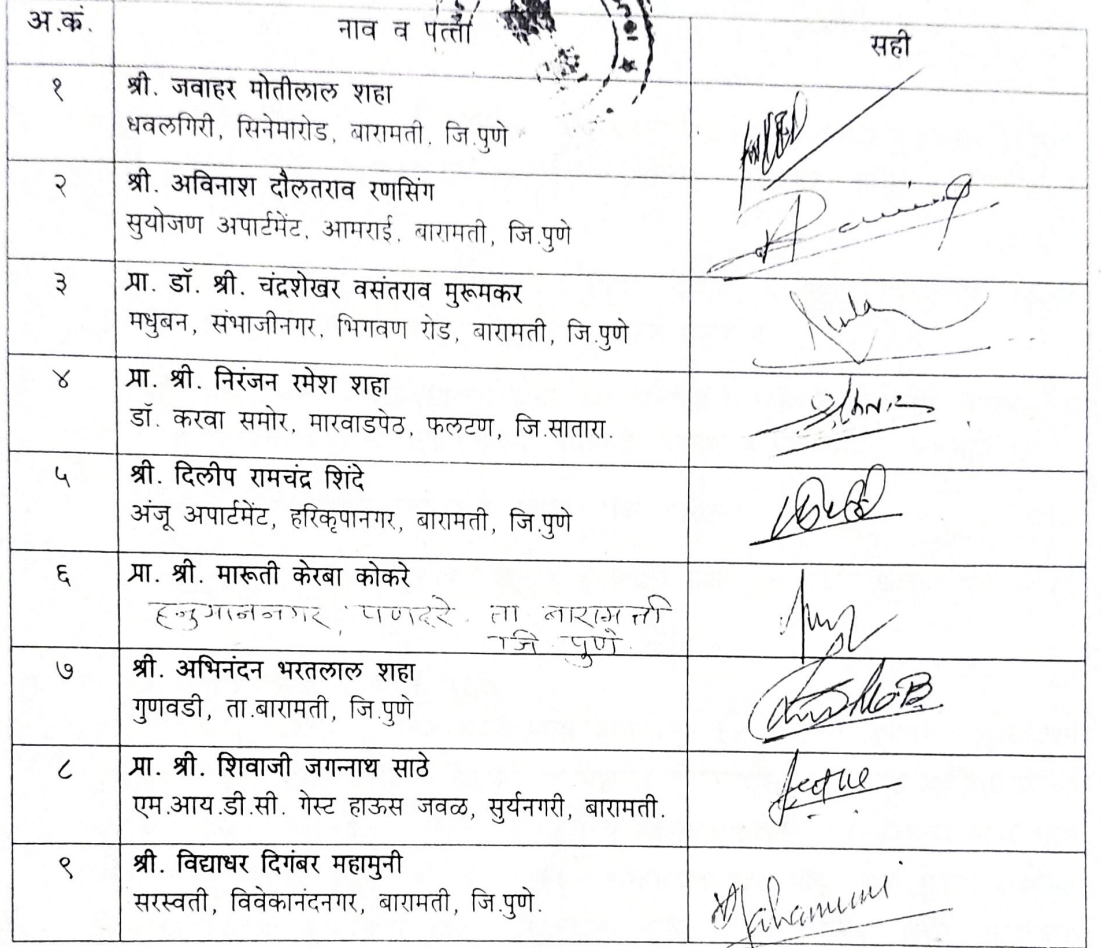 अ.कं. नाव व पत्ता सही
१ श्री. जवाहर मोतीलाल शहा
धवलगिरी, सिनेमारोड, बारामती, जि.पुणे
२ श्री. अविनाश दौलतराव रणसिंग
सुयोजण अपार्टमेंट, आमराई, बारामती, जि.पुणे
३ प्रा. डॉ. श्री. चंद्रशेखर वसंतराव मुरूमकर
मधुबन, संभाजीनगर, भिगवण रोड, बारामती, जि.पुणे
४ प्रा. श्री. निरंजन रमेश शहा
डॉ. करवा समोर, मारवाडपेठ, फलटण, जि.सातारा.
५ श्री. दिलीप रामचंद्र शिंदे
अंजू अपार्टमेंट, हरिकृपानगर, बारामती, जि.पुणे
६ प्रा. श्री. मारूती केरबा कोकरे
हनुमाननगर, पणदरे. ता बारामती
जि पुणे.
७ श्री. अभिनंदन भरतलाल शहा
गुणवडी, ता.बारामती, जि.पुणे
८ प्रा. श्री. शिवाजी जगन्नाथ साठे
एम.आय.डी.सी. गेस्ट हाऊस जवळ, सुर्यनगरी, बारामती.
९ श्री. विद्याधर दिगंबर महामुनी
सरस्वती, विवेकानंदनगर, बारामती, जि.पुणे.